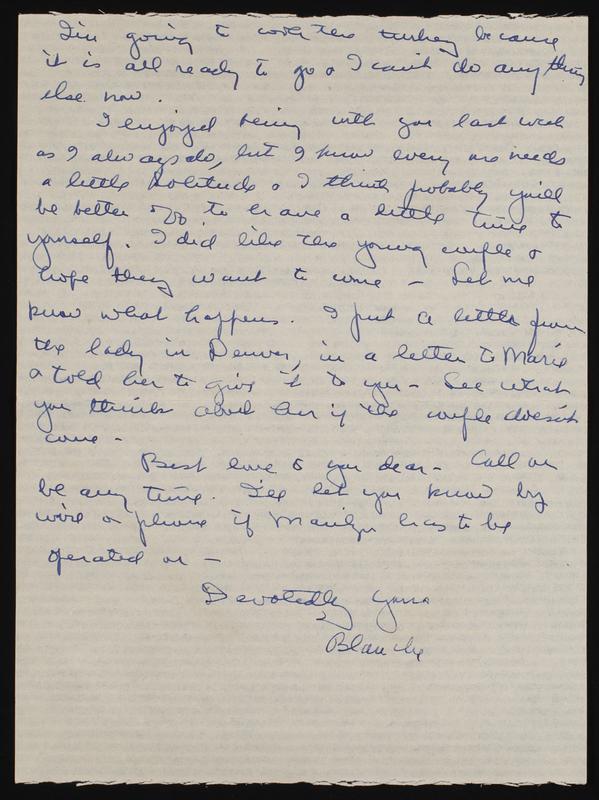 I'm going to cook the turkey because
it is all ready to go & I can't do anything
else now.
I enjoyed being with you last week
as I always do, but I know every one needs
a little solitude & I think probably you'll
be better off to have a little time to
yourself. I did like the young couple &
hope they want to come – Let me
know what happens. I put a letter from
the lady in Denver, in a letter to Marie
& told her to give it to you – See what
you think about her if the couple doesn't
come –
Best love to you dear – Call on
be any time. I'll let you know by
wire or phone if Marilyn has to be
operated on –
Devotedly yours
Blanche